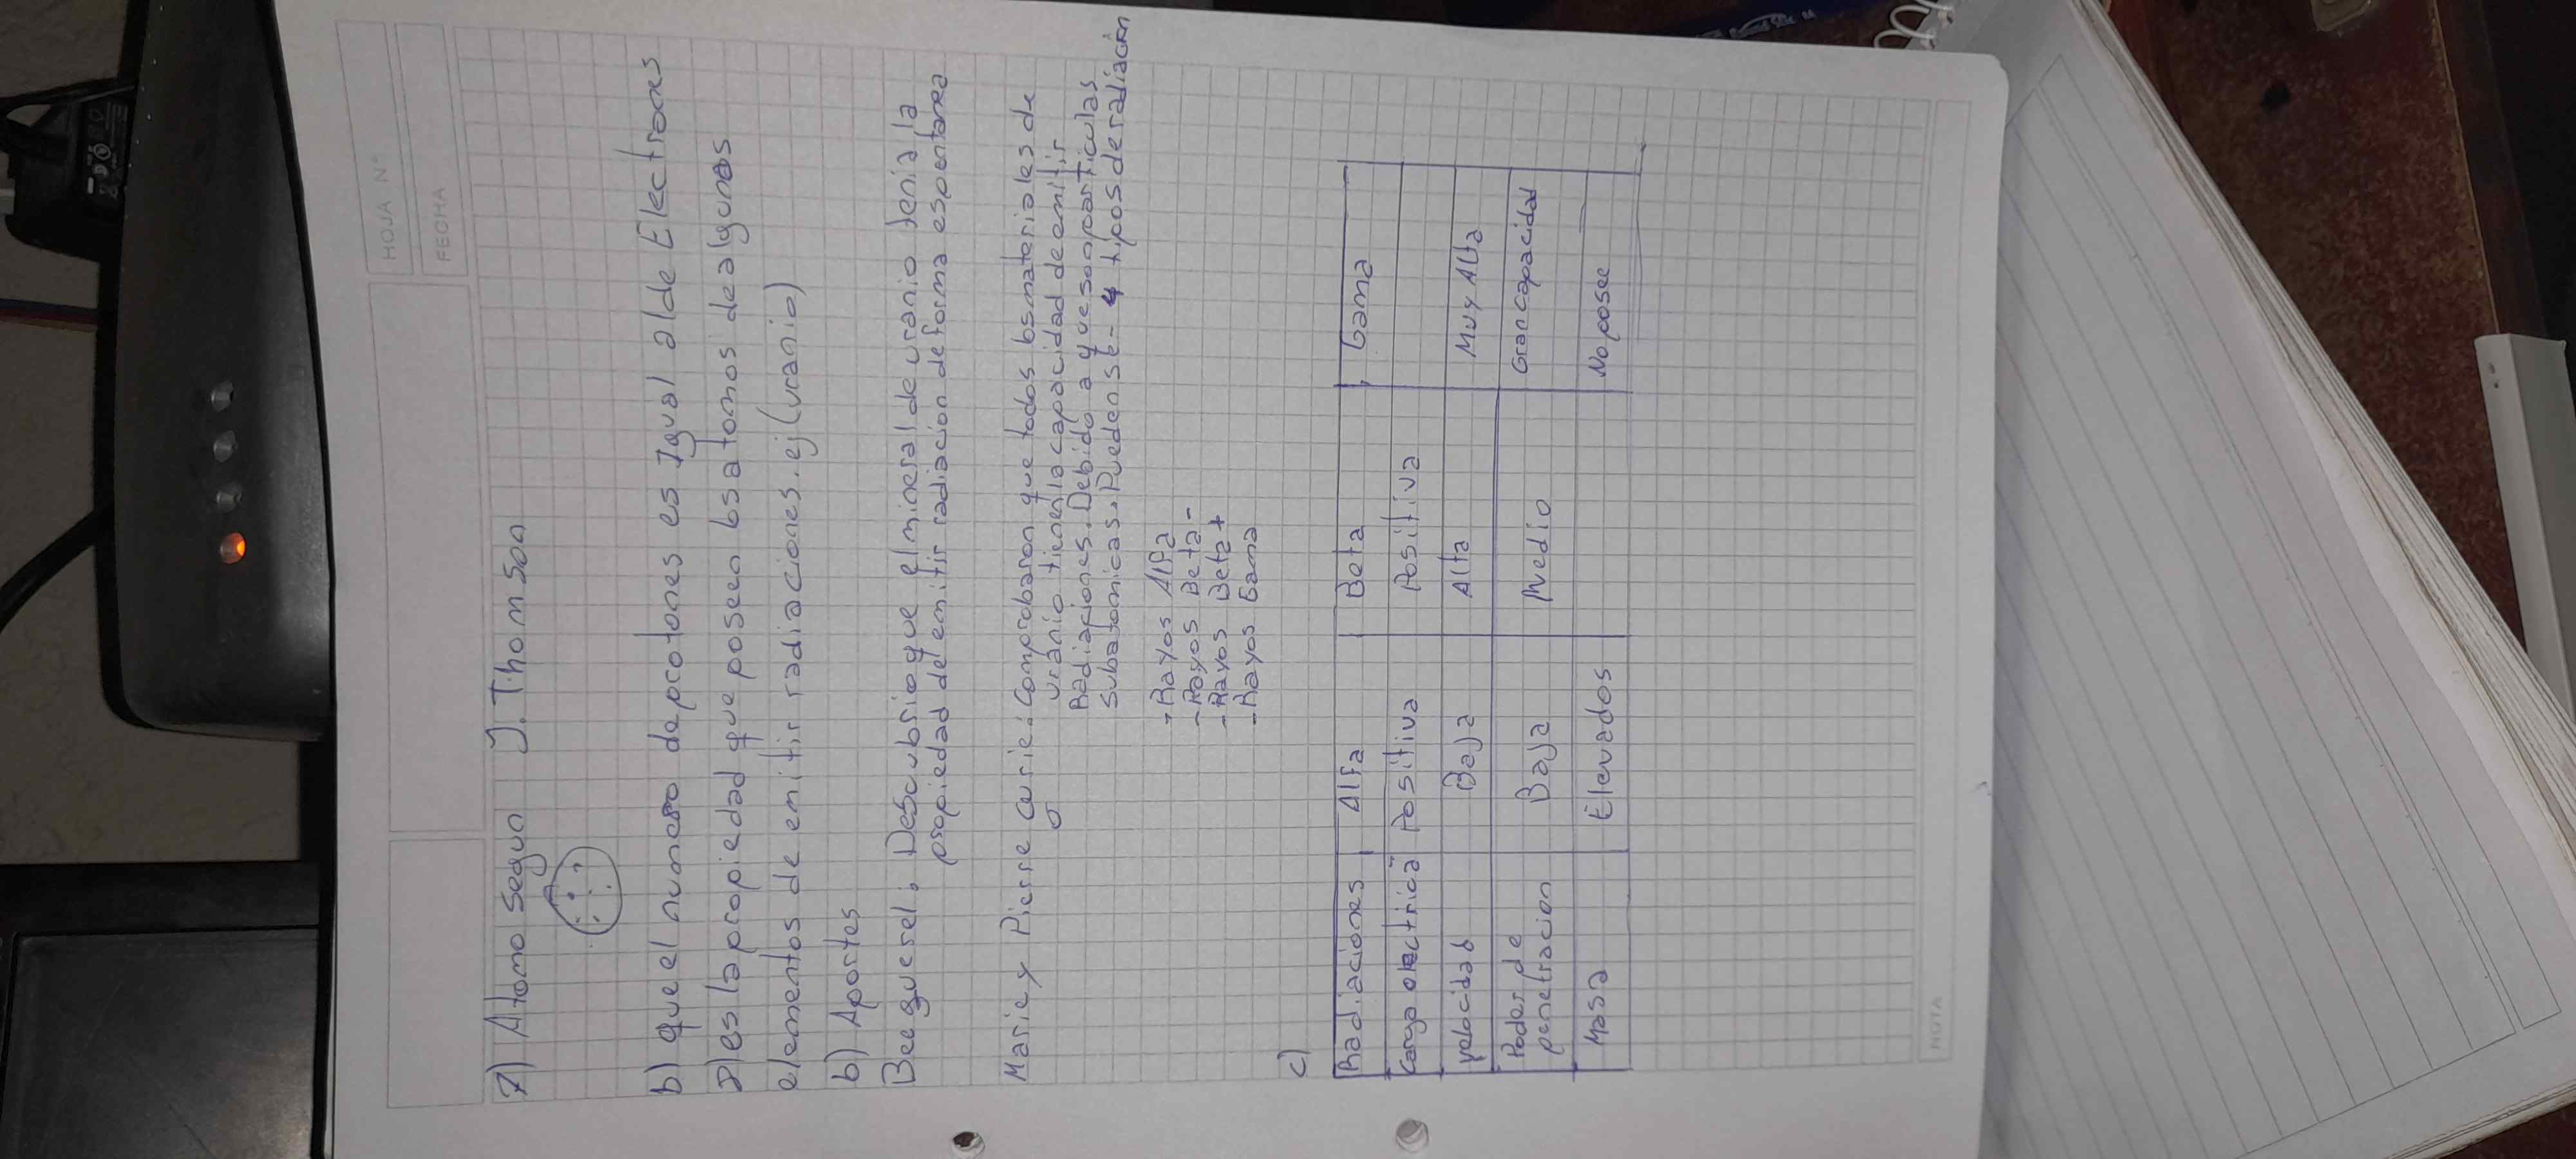 HOJA N°
FECHA
7) Atomo Segun J. Thomson
b) que el numero de protones es Igual al de Electrones
a) es la propiedad que poseen los atomos de algunos
elementos de emitir radiaciones. ej (uranio)
b) Aportes
Becquerel: Descubrio que el mineral de uranio tenia la
propiedad de emitir radiacion de forma espontanea
Marie y Pierre Curie: Comprobaron que todos los materiales de
uranio tienen la capacidad de emitir
Radiaciones. Debido a que son particulas
Subatomicas. Pueden ser 4 tipos de radiacion
- Rayos Alfa
- Rayos Beta-
- Rayos Beta+
- Rayos Gama
c)
Radiaciones Alfa Beta Gama
Carga electrica Positiva Positiva
velocidad Baja Alta Muy Alta
Poder de penetracion Baja Medio Gran capacidad
Masa Elevados No posee
NOTA